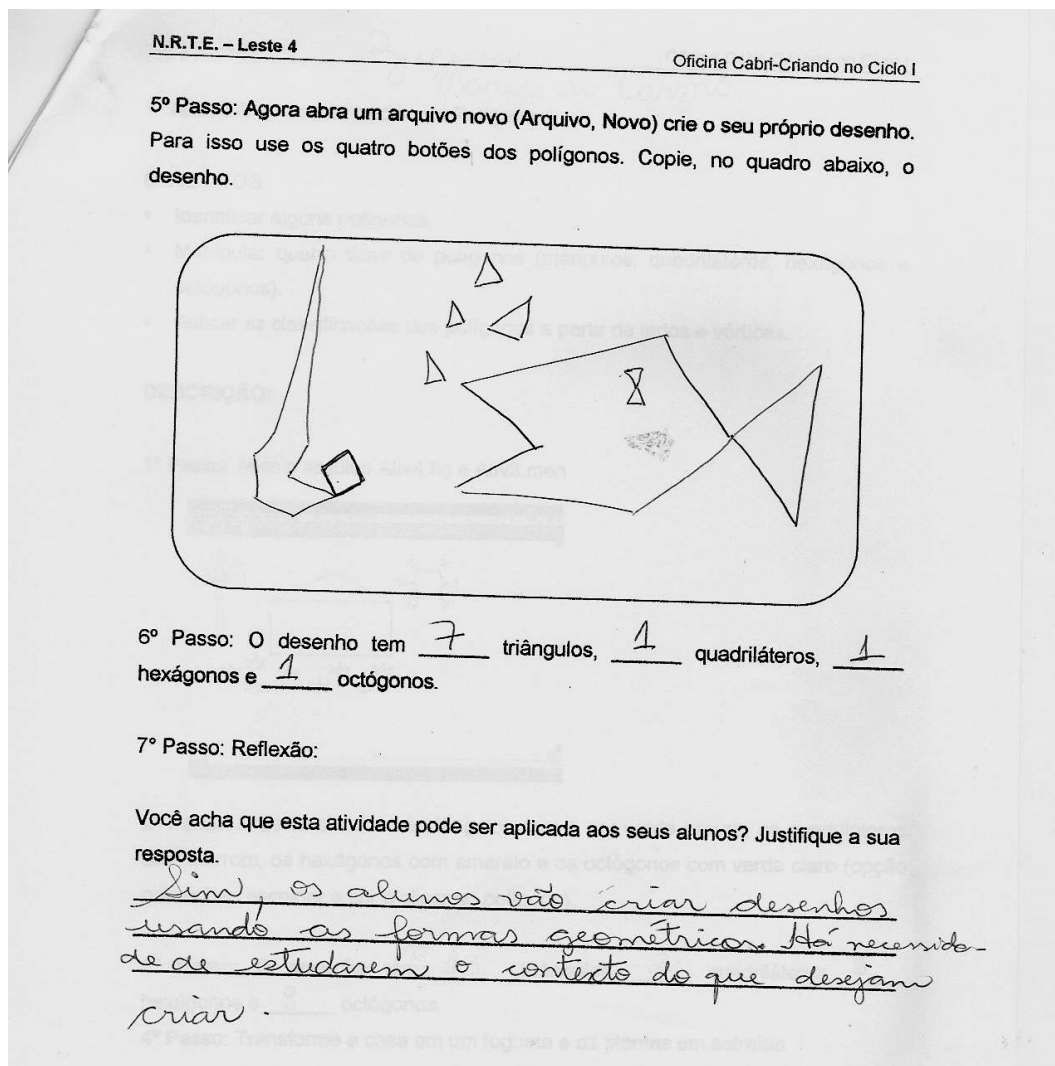 N.R.T.E. – Leste 4
Oficina Cabri-Criando no Ciclo I
5º Passo: Agora abra um arquivo novo (Arquivo, Novo) crie o seu próprio desenho.
Para isso use os quatro botões dos polígonos. Copie, no quadro abaixo, o
desenho.
6º Passo: O desenho tem 7 triângulos, 1 quadriláteros, 1
hexágonos e 1 octógonos.
7° Passo: Reflexão:
Você acha que esta atividade pode ser aplicada aos seus alunos? Justifique a sua
resposta.
Sim, os alunos vão criar desenhos
usando as formas geométricas. Há necessida-
de de estudarem o contexto do que desejam
criar.